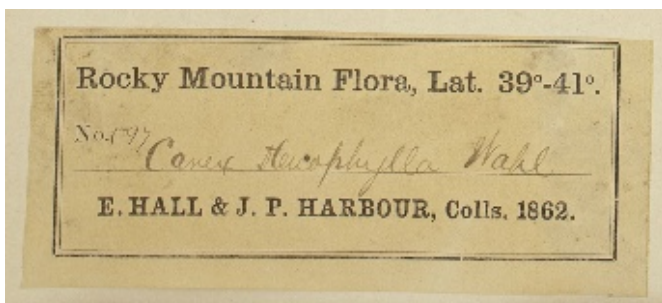 Rocky Mountain Flora, Lat. 39°-41°.
No.
Carex stenophylla Wahl
E. HALL & J. P. HARBOUR, Colls. 1862.